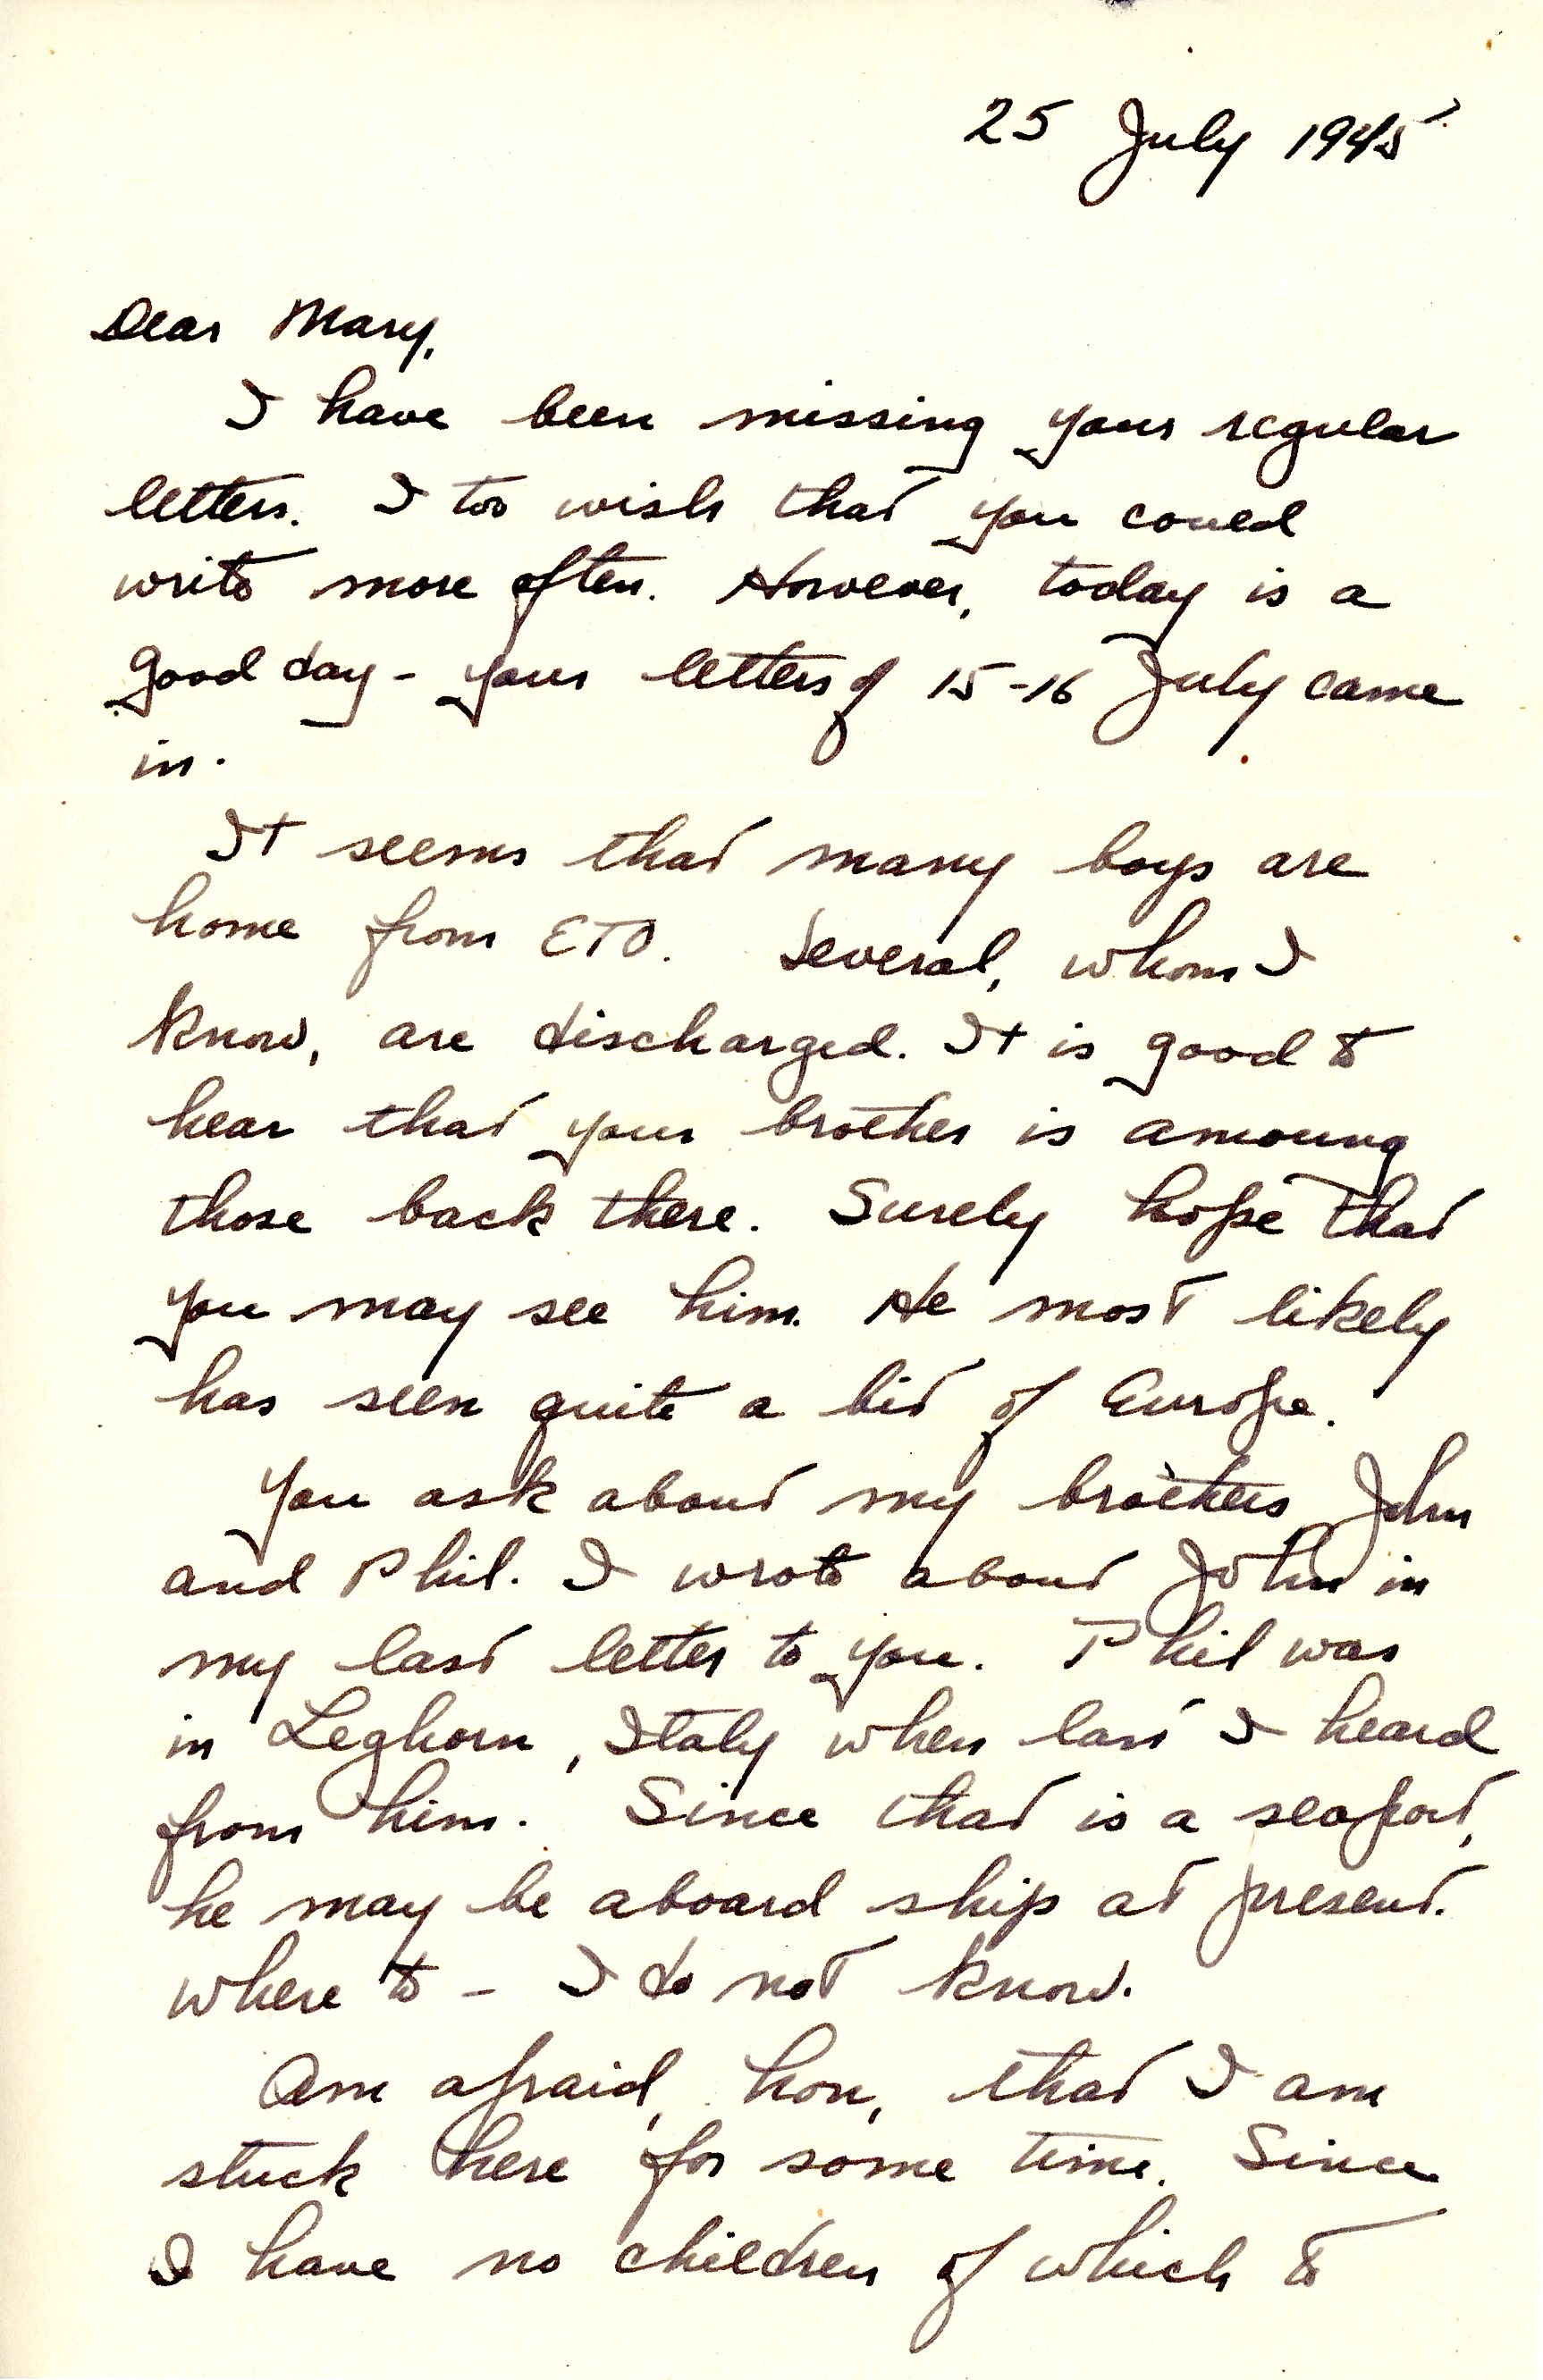 25 July 1945
Dear Mary,
I have been missing your regular
letters. I too wish that you could
write more often. However, today is a
good day - your letters of 15-16 July came
in.
It seems that many boys are
home from ETO. Several, whom I
know, are discharged. It is good to
hear that your brother is amoung
those back there. Surely hope that
you may see him. He most likely
has seen quite a bit of Europe.
You ask about my brothers John
and Phil. I wrote about John in
my last letter to you. Phil was
in Leghorn, Italy when last I heard
from him. Since that is a seaport,
he may be aboard ship at present.
Where to - I do not know.
Am afraid, hon, that I am
stuck here for some time. Since
I have no children of which to